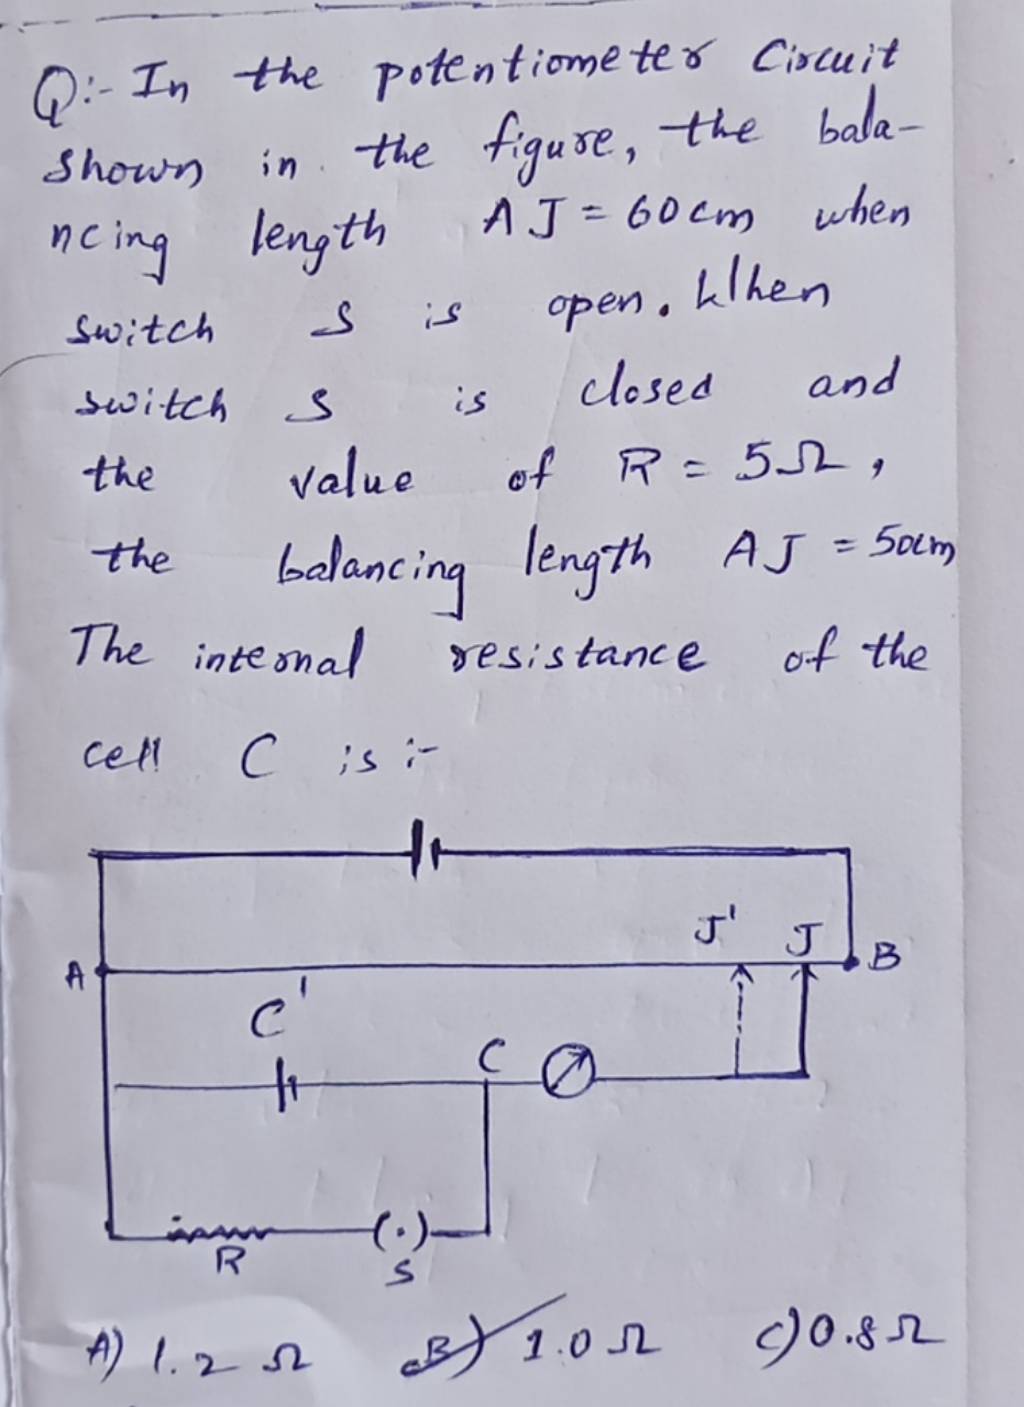 Q:- In the potentiometer Circuit
Shown in the figure, the bala-
ncing length AJ = 60cm when
switch S is open. When
switch S is closed and
the value of R = 5Ω,
the balancing length AJ = 50cm
The internal resistance of the
cell C is :-
J' J
A B
C'
C
R S
A) 1.2 Ω B) 1.0 Ω C) 0.8 Ω